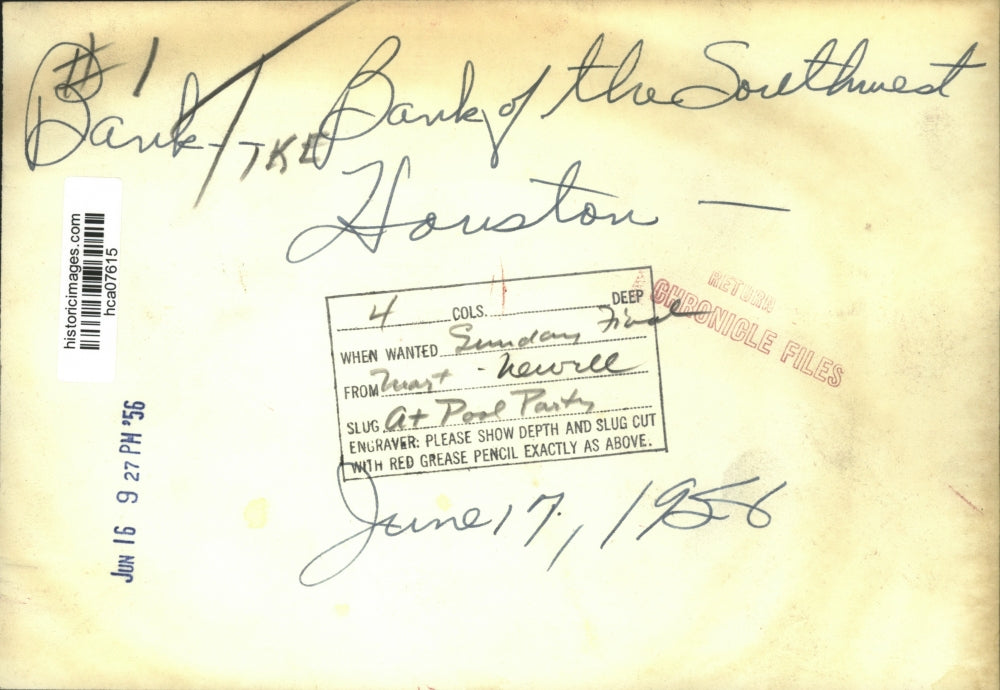 #1
Bank - Bank of the Southwest
TKE
Houston —
historicimages.com
hca07615
4 COLS. DEEP
WHEN WANTED Sunday Final
FROM Mart - Newell
SLUG At Pool Party
ENGRAVER: PLEASE SHOW DEPTH AND SLUG CUT
WITH RED GREASE PENCIL EXACTLY AS ABOVE.
RETURN
CHRONICLE FILES
JUN 16 9 27 PM '56
June 17, 1956